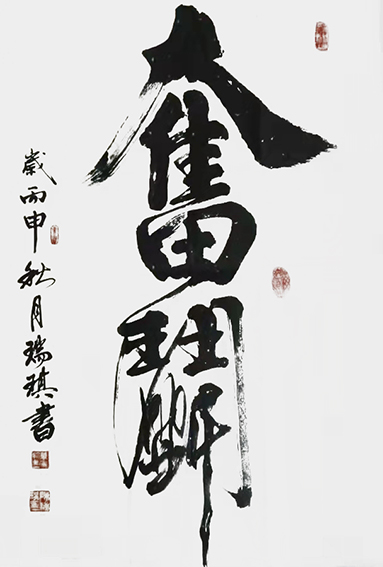 奮鬥
歲丙申秋月瑞琪書